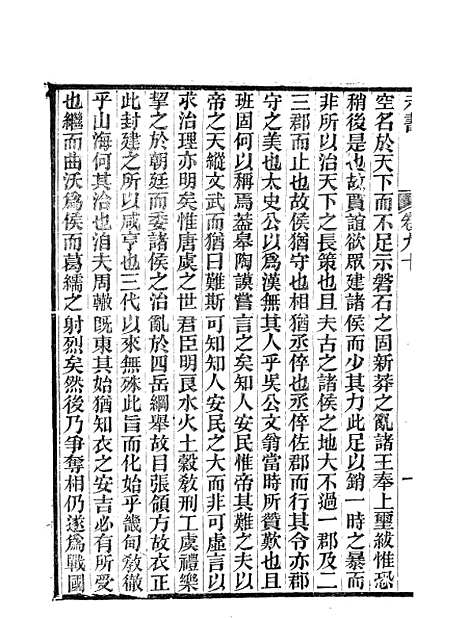 空名於天下而不足示磐石之固新莽之亂諸王奉上璽紱惟恐
稍後是也故賈誼欲眾建諸侯而少其力此足以銷一時之暴而
非所以治天下之長策也且夫古之諸侯之地大不過一郡及二
三郡而止也故侯相猶丞倅也丞倅佐郡而行其令亦郡
守之美也太史公以爲漢無其人乎吳公文翁當時所贊歎也且
班固何以稱焉葢皋陶謨嘗言之矣知人安民惟帝其難之夫以
帝之天縱文武而猶曰難斯可知知人安民之大而非可虛言以
求治理亦明矣惟唐虞之世君臣明良水火土穀敎刑工虞禮樂
挈之於朝廷而委諸侯之治亂於四岳綱舉故目張領方故衣正
此封建之所以咸亨也三代以來無殊此旨而化始乎畿甸敎徹
乎山海何其洽也洎夫周轍旣東其始猶知衣之安吉必有所受
也繼而曲沃爲侯而葛繻之射烈矣然後乃爭奪相仍遂爲戰國
卷九十